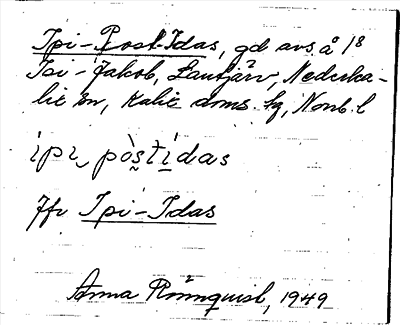 Ipi-Post-Idas, gd avs. å 1/8
Isi-Jakob, Lantjärv, Nederka-
lix sn, Kalix doms. fg, Norrb. l
ipi pòstidas
Jfr Ipi-Idas
Anna Rönnquist, 1949